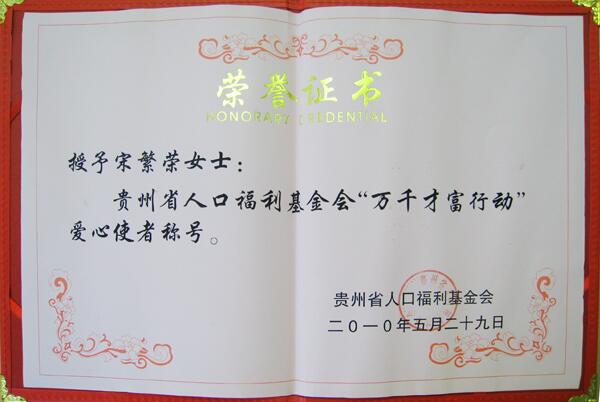 荣誉证书
HONORARY CREDENTIAL
授予宋繁荣女士：
贵州省人口福利基金会“万千才富行动”
爱心使者称号。
贵州省人口福利基金会
二〇一〇年五月二十九日